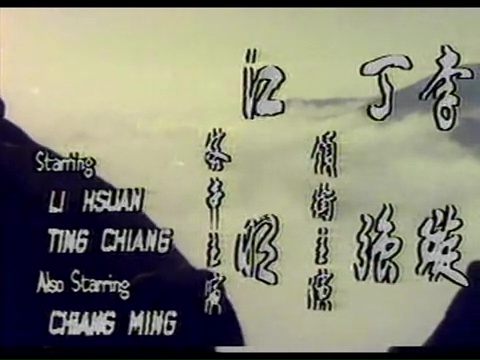 李璇
丁強
領銜主演
江明
客串主演
Starring
LI HSUAN
TING CHIANG
Also Starring
CHIANG MING